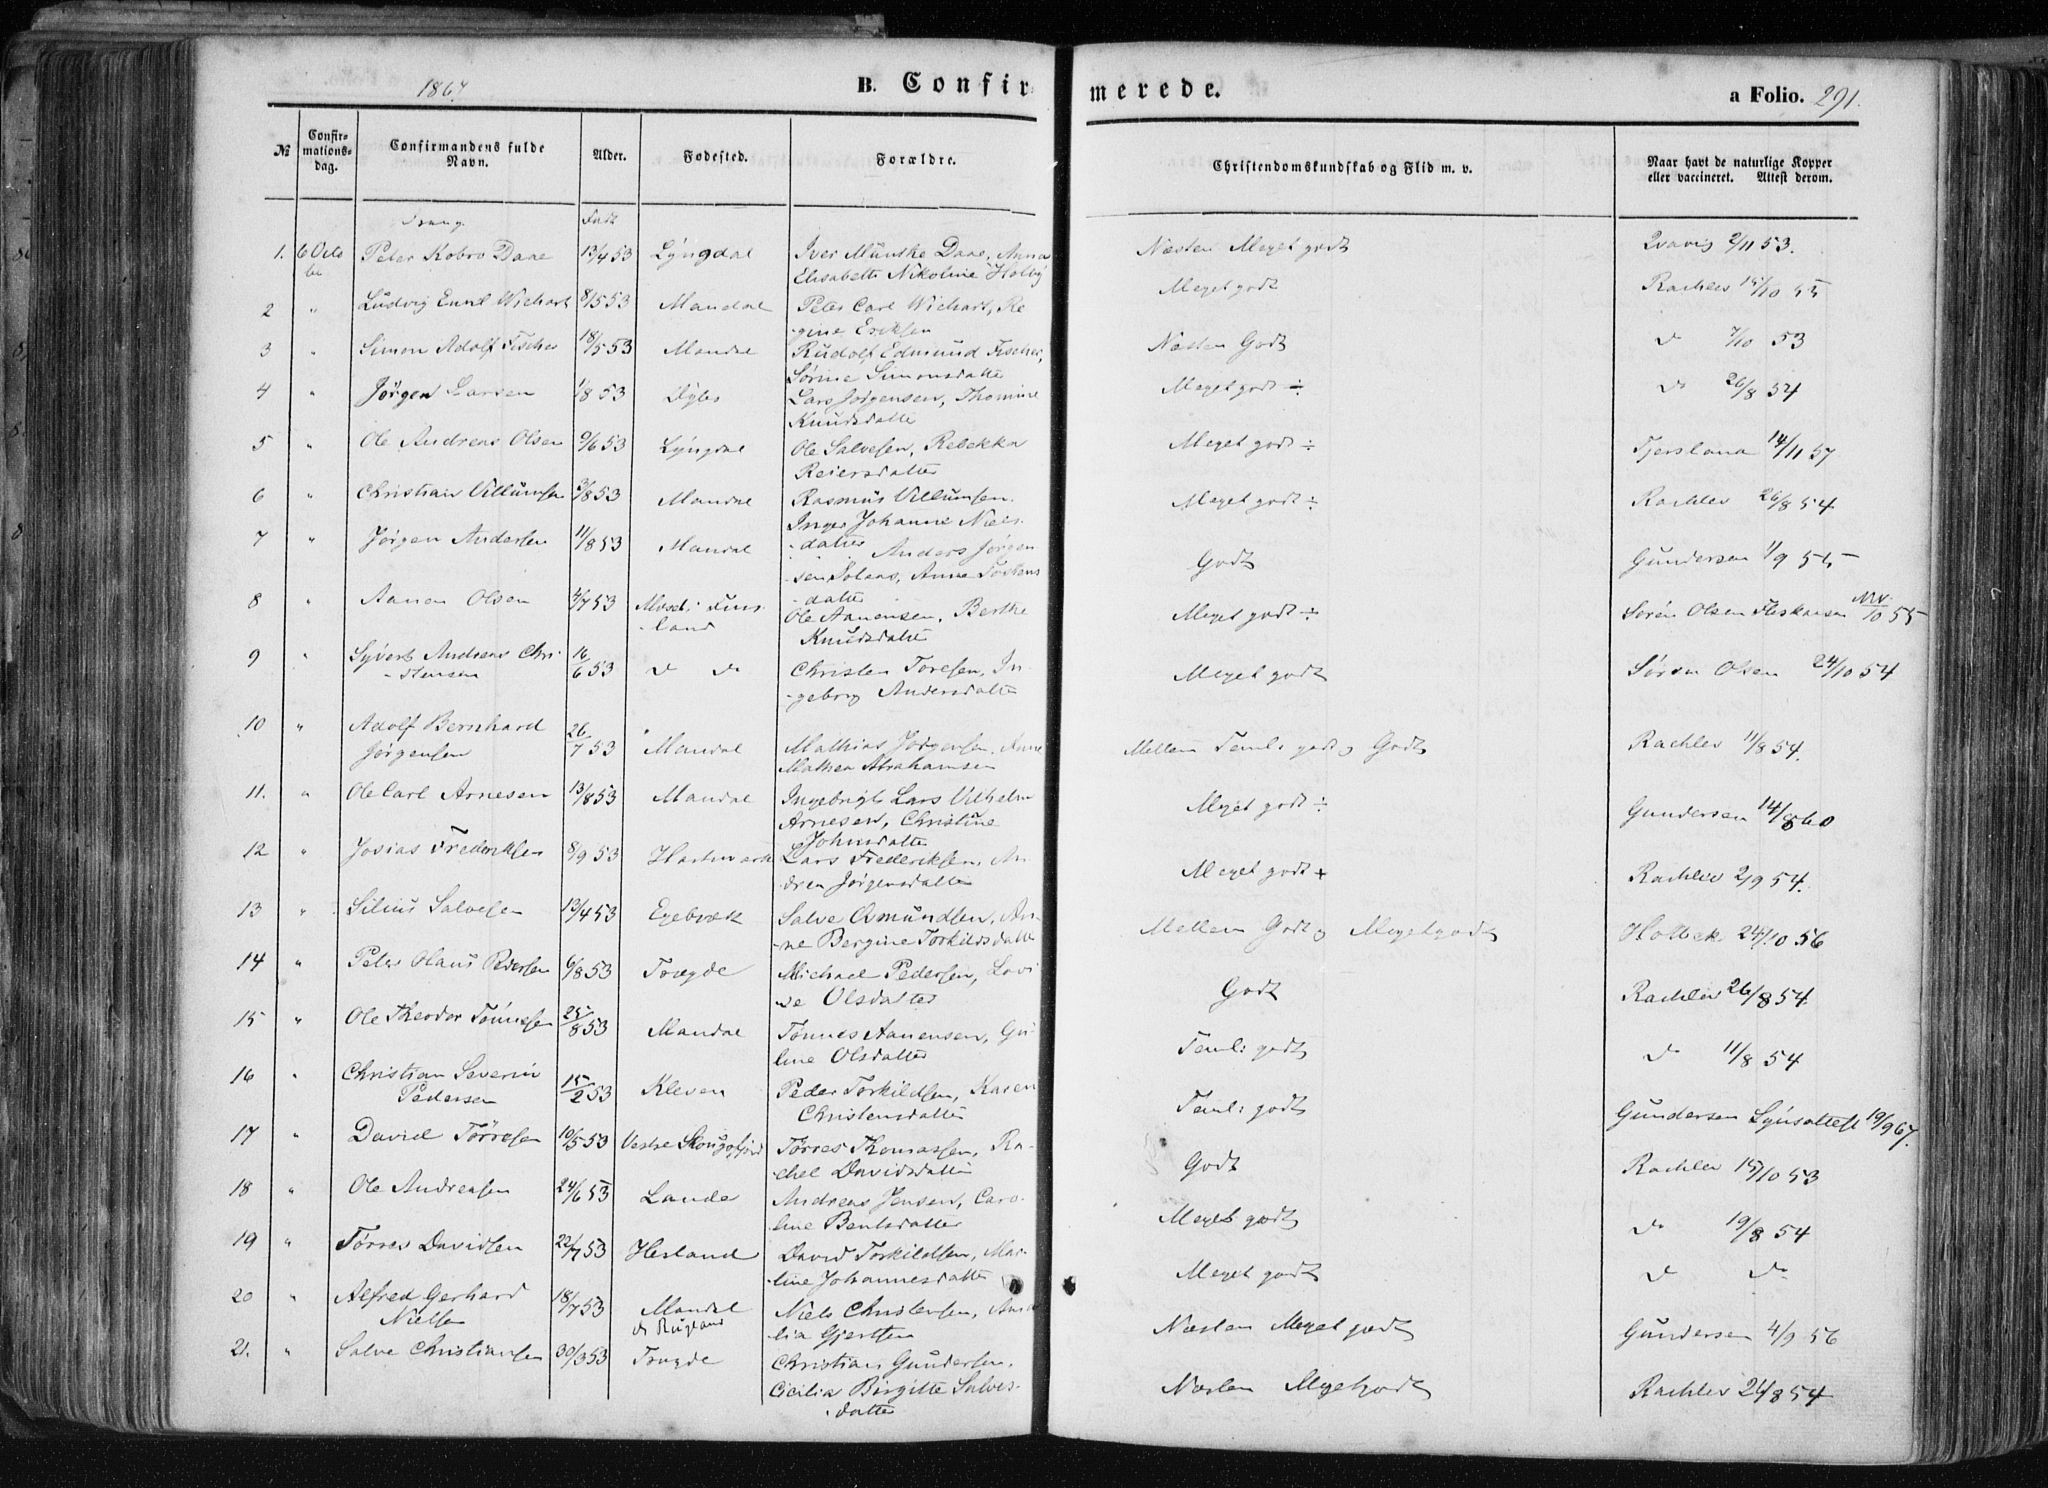 1867. B. Confirmerede. a Folio. 291.
№ Confirmationsdag. Confirmandens fulde Navn. Alder. Fødested. Forældre. Christendomskundskab og Flid m. v. Naar havt de naturlige Kopper eller vaccineret. Attest derom.
Drang. Født
1. 6 Octobr Peter Kobro Daae 13/4 53 Lyngdal Iver Munthe Daae, Anna Næsten Meget godt 2/11 53.
Elisabeth Nikoline Holby
2 " Ludvig Emil Wichart 8/5 53 Mandal Peter Carl Wichart, Re Meget godt Rachlev 15/10 55
-gine Eriksen
3 " Simon Adolf Fischer 18/5 53 Mandal Rudolf Edmund Fischer, Næsten Godt do 7/10 53
Sørine Simonsdatter
4 " Jørgen Larsen 1/8 53 Lars Jørgensen, Thomine Meget godt ÷ do 26/8 54
Knudsdatter
5 " Ole Andreas Olsen 9/6 53 Lyngdal Ole Salvesen, Rebekka Meget godt ÷ Tjersland 14/11 57
Reiersdatter
6 " Christian Villumsen 3/8 53 Mandal Rasmus Villumsen. Meget godt ÷ Rachlev 26/8 54
Inger Johanne Niels-
-datter
7 " Jørgen Andersen 11/8 53 Mandal Anders Jørgen Godt Gundersen 1/9 55
-sen Solaas, Anne Torkens
-datter
8 " Aanon Olsen 4/7 53 Finsland Ole Aanensen, Berthe Meget godt ÷ Søren Olsen 10 55
Knudsdatter
9 " Syvert Andreas Chri- 16/6 53 do do Christen Toresen, In- Meget godt Søren Olsen 24/10 54
-stensen -geborg Andersdatter
10 " Adolf Bernhard 26/7 53 Mandal Mathias Jørgensen, Anne Mellem Teml: godt og Godt Rachlev 11/8 54.
Jørgensen Mathea Abrahamsen
11. " Ole Carl Arnesen 13/8 53 Mandal Ingebrigt Lars Vilhelm Meget godt ÷ Gundersen 14/8 60
Arnesen, Christine
Johnsdatter
12 " Josias Frederiksen 8/9 53 Lars Frederiksen, An- Meget godt + Rachlev 2/9 54.
drea Jørgensdatter
13 " Silius Salvesen 13/4 53 Egebræk Salve Osmundsen, An- Mellem Godt og Meget godt Holbek 24/10 56
-ne Bergine Torkildsdatter
14 " Peter Hans Pedersen 6/8 53 Trægde Michael Pedersen, Lovi Godt Rachlev 26/8 54.
se Olsdatter
15 " Ole Theodor Tønnesen 25/8 53 Mandal Tønnes Aanensen, Gu- Teml: godt do 11/8 54
line Olsdatter
16 " Christian Severin 15/2 53 Kleven Peder Torkildsen, Karen Teml: godt Gundersen Lysattest 19/9 67.
Pedersen Christensdatter
17 " David Tørresen 10/5 53 Vestre Skougsfjord Tørres Thomassen, Ra- Godt Rachlev 15/10 53
chel Davidsdatter
18 " Ole Andreasen 24/6 53 Lande Andreas Jensen, Caro- Meget godt do 19/8 54
line Bentsdatter
19 " Tørres Davidsen 22/7 53 Hesland David Torkildsen, Mar- Meget godt do do
-line Johannesdatter
20 " Alfred Gerhard 18/7 53 Mandal Niels Christensen, Næsten Meget godt Gundersen 4/9 56
Nielsen lia Gjertsen
21. " Salve Christiansen 30/3 53 Trægde Christian Gundersen, Næsten Meget godt Rachlev 24/8 54
Cicilia Birgitte Salves-
-datter